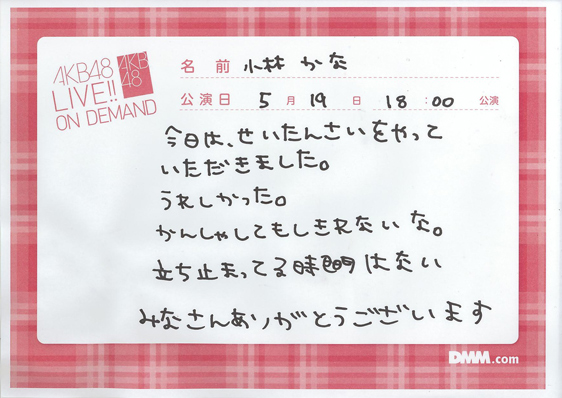 AKB48
LIVE!!
ON DEMAND
AKB
48
名 前 小林 かな
公演日 5 月 19 日 18 : 00 公演
今日は、せいたんさいをやって
いただきました。
うれしかった。
かんしゃしてもしきれないな。
立ち止まってる時間はない
みなさんありがとうございます
DMM.com